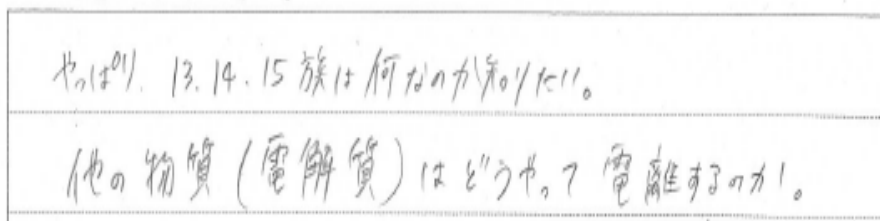 やっぱり、13.14.15族は何なのか知りたい。
他の物質(電解質)はどうやって電離するのか。